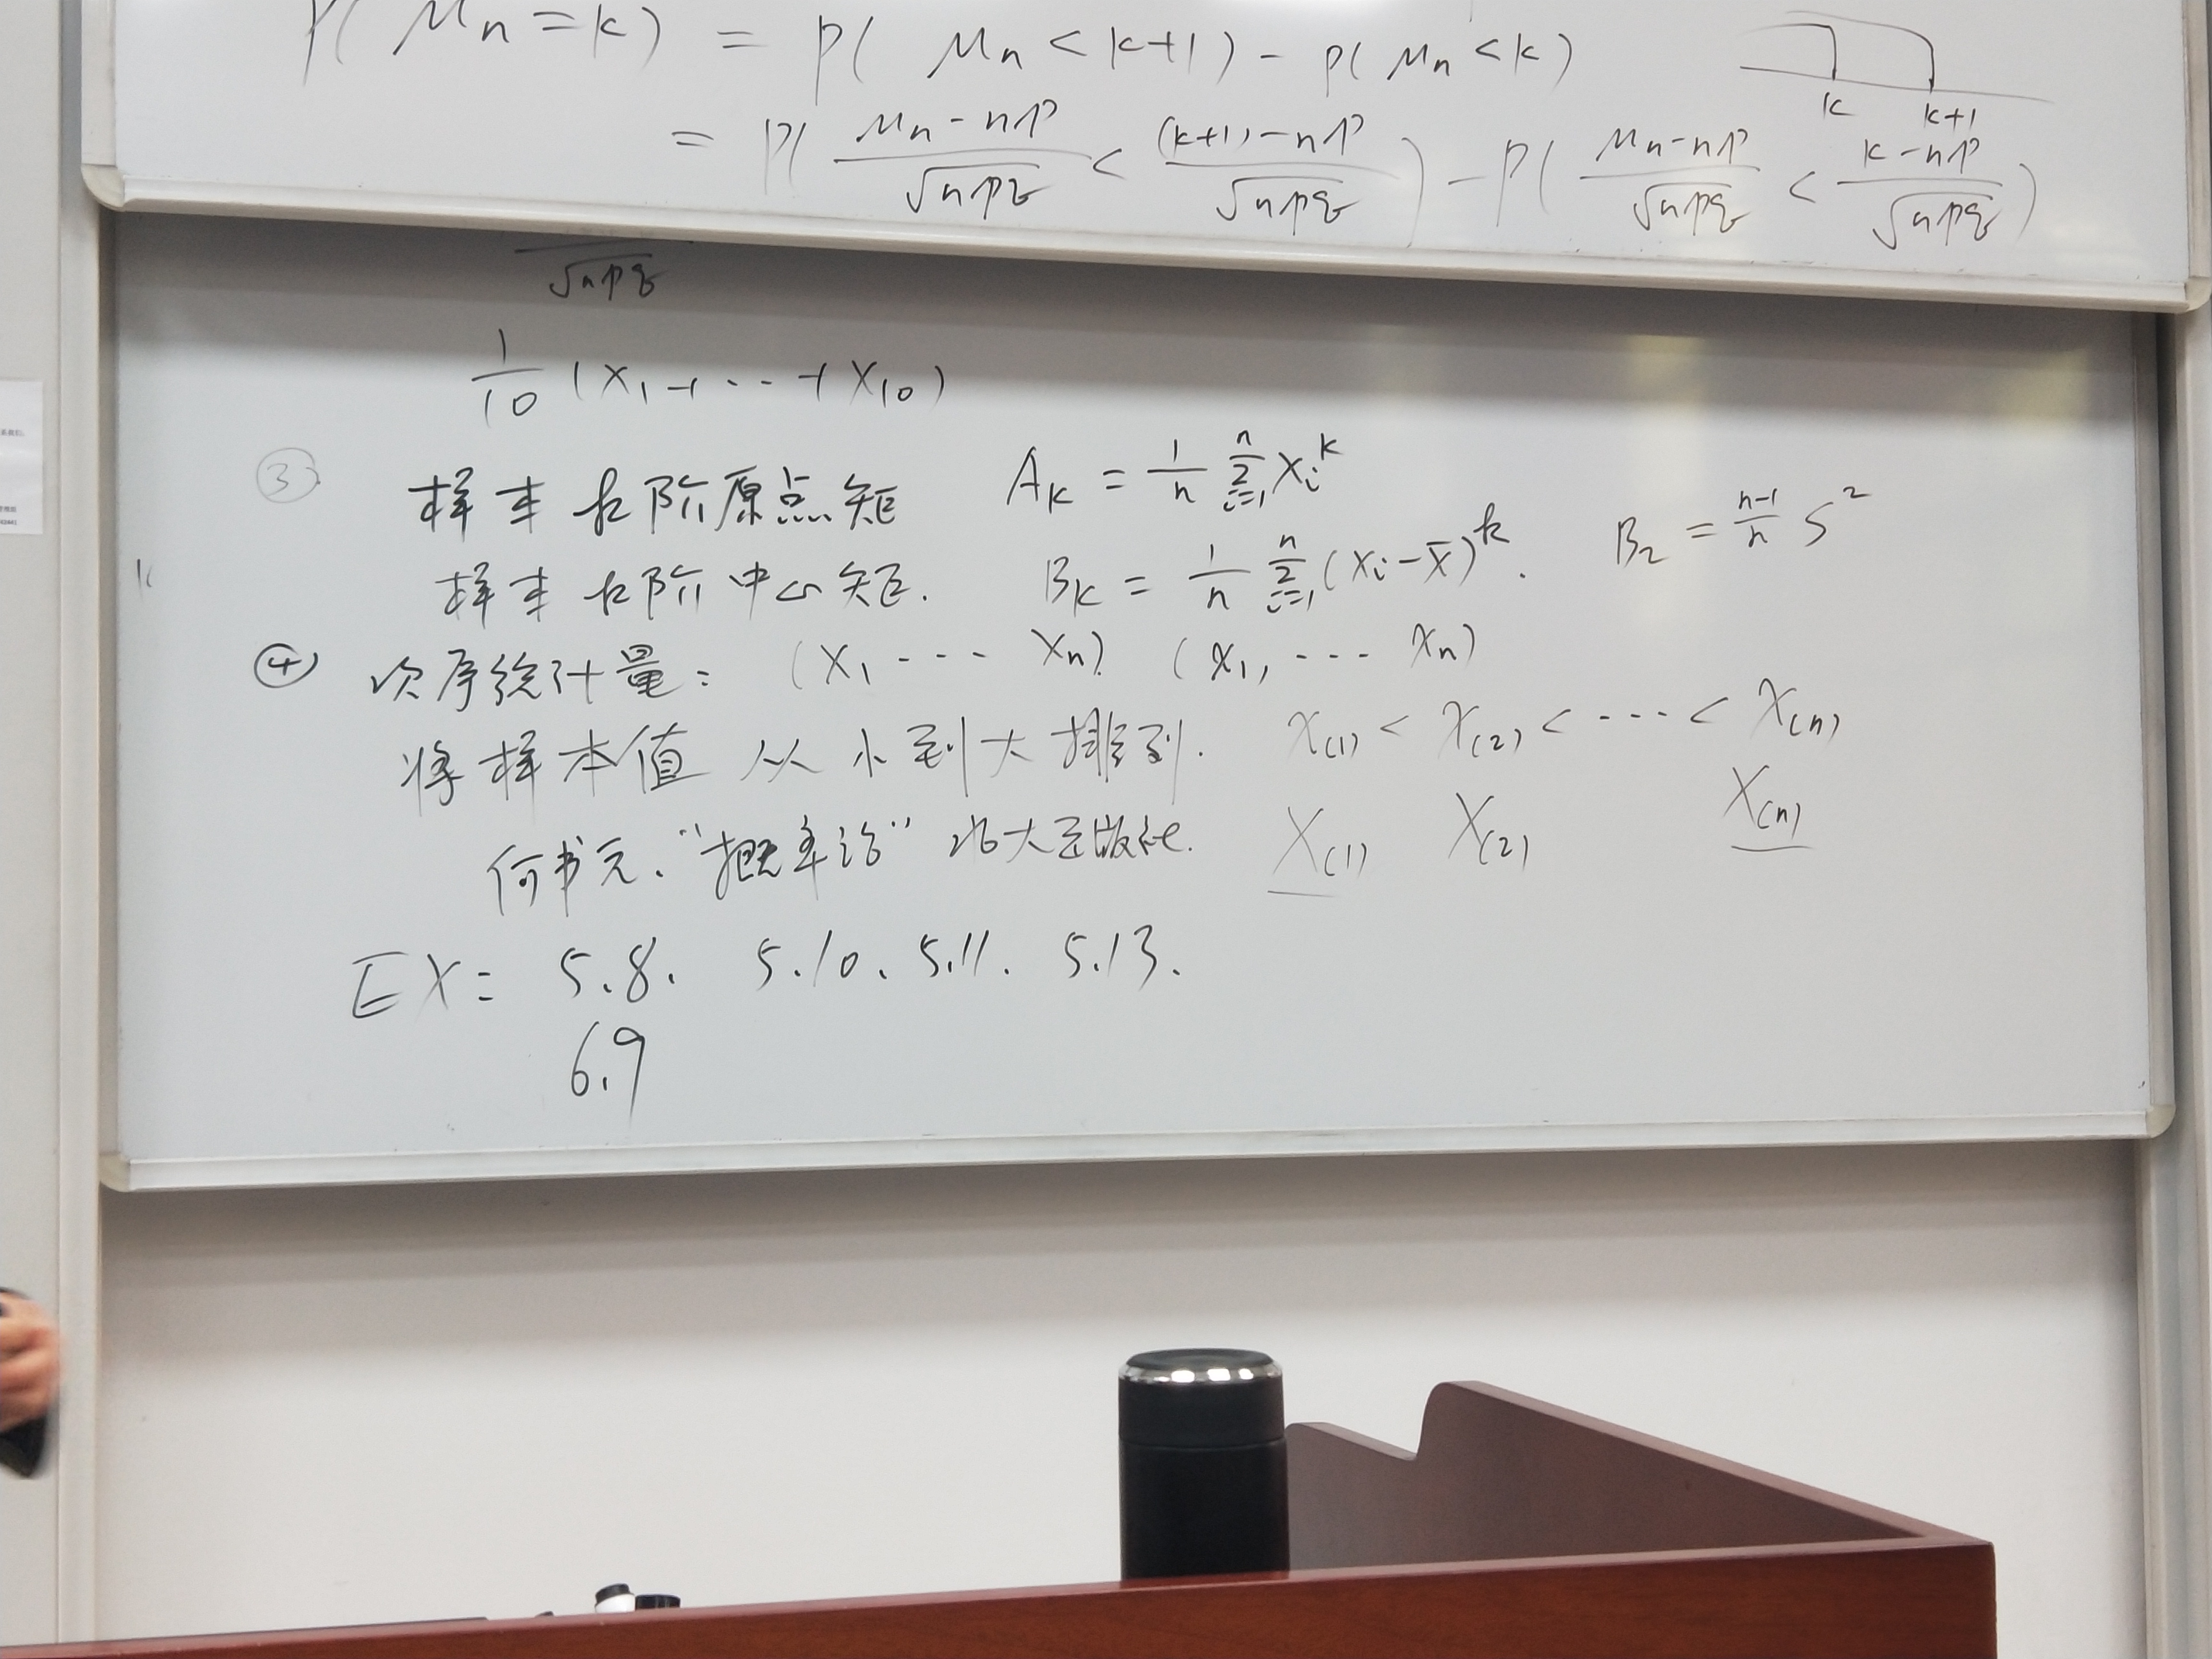 P( μn = k ) = P( μn < k+1 ) - P( μn < k )
k k+1
= P( (μn - np)/√npq < ((k+1) - np)/√npq ) - P( (μn - np)/√npq < (k - np)/√npq )
√npq
1/10 (X1 + ... + X10)
③ 样本k阶原点矩 Ak = 1/n Σ(i=1→n) Xi^k
样本k阶中心矩. Bk = 1/n Σ(i=1→n) (Xi - X̄)^k. B2 = (n-1)/n S²
k
④ 次序统计量: (X1 ... Xn). (x1, ... xn)
将样本值 从小到大排列. x(1) < x(2) < ... < x(n)
何书元、"概率论" 北大出版社. X(1) X(2) X(n)
EX: 5.8. 5.10. 5.11. 5.13.
6.9